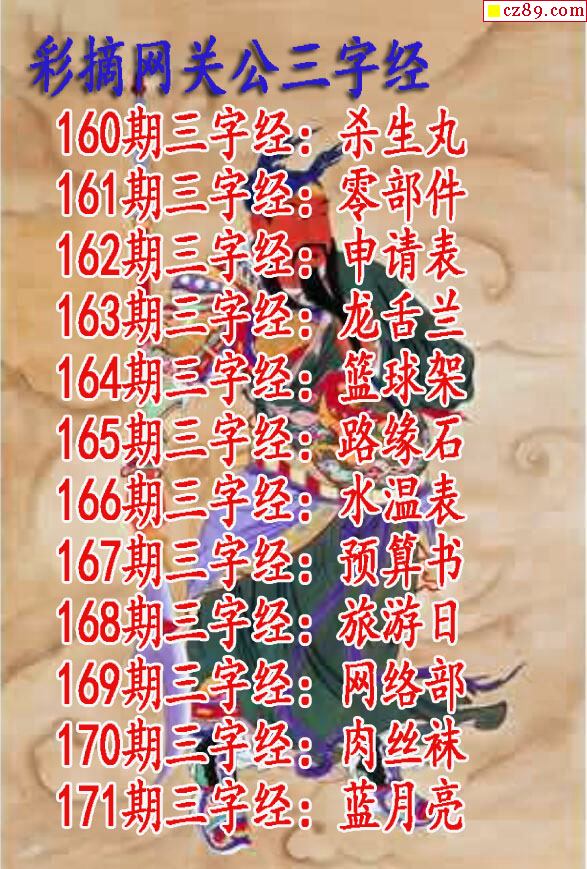 cz89.com
彩摘网关公三字经
160期三字经：杀生丸
161期三字经：零部件
162期三字经：申请表
163期三字经：龙舌兰
164期三字经：篮球架
165期三字经：路缘石
166期三字经：水温表
167期三字经：预算书
168期三字经：旅游日
169期三字经：网络部
170期三字经：肉丝袜
171期三字经：蓝月亮